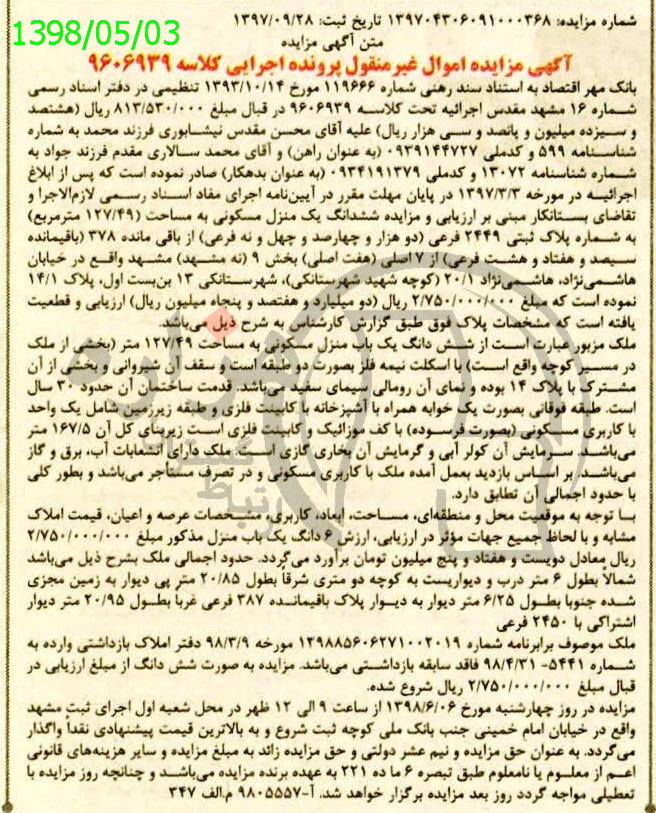 شماره مزایده: ۱۳۹۷۰۴۳۰۶۰۹۱۰۰۰۳۶۸ تاریخ ثبت: ۱۳۹۷/۰۹/۲۸
1398/05/03
متن آگهی مزایده
آگهی مزایده اموال غیرمنقول پرونده اجرایی کلاسه ۹۶۰۶۹۳۹
بانک مهر اقتصاد به استناد سند رهنی شماره ۱۱۹۶۶۶ مورخ ۱۳۹۳/۱۰/۱۴ تنظیمی در دفتر اسناد رسمی
شماره ۱۶ مشهد مقدس اجرائیه تحت کلاسه ۹۶۰۶۹۳۹ در قبال مبلغ ۸۱۳/۵۳۰/۰۰۰ ریال (هشتصد
و سیزده میلیون و پانصد و سی هزار ریال) علیه آقای محسن مقدس نیشابوری فرزند محمد به شماره
شناسنامه ۵۹۹ و کدملی ۰۹۳۹۱۴۴۷۲۷ (به عنوان راهن) و آقای محمد سالاری مقدم فرزند جواد به
شماره شناسنامه ۱۳۰۷۲ و کدملی ۰۹۳۴۱۹۱۳۷۹ (به عنوان بدهکار) صادر نموده است که پس از ابلاغ
اجرائیه در مورخه ۱۳۹۷/۳/۳ در پایان مهلت مقرر در آیین‌نامه اجرای مفاد اسناد رسمی لازم‌الاجرا و
تقاضای بستانکار مبنی بر ارزیابی و مزایده ششدانگ یک منزل مسکونی به مساحت (۱۲۷/۴۹ مترمربع)
به شماره پلاک ثبتی ۲۴۴۹ فرعی (دو هزار و چهارصد و چهل و نه فرعی) از باقی مانده ۳۷۸ (باقیمانده
سیصد و هفتاد و هشت فرعی) از ۷ اصلی (هفت اصلی) بخش ۹ (نه مشهد) مشهد واقع در خیابان
هاشمی‌نژاد، هاشمی‌نژاد ۲۰/۱ (کوچه شهید شهرستانکی)، شهرستانکی ۱۳ بن‌بست اول، پلاک ۱۴/۱
نموده است که مبلغ ۲/۷۵۰/۰۰۰/۰۰۰ ریال (دو میلیارد و هفتصد و پنجاه میلیون ریال) ارزیابی و قطعیت
یافته است که مشخصات پلاک فوق طبق گزارش کارشناس به شرح ذیل می‌باشد.
ملک مزبور عبارت است از شش دانگ یک باب منزل مسکونی به مساحت ۱۲۷/۴۹ متر (بخشی از ملک
در مسیر کوچه واقع است) با اسکلت نیمه فلز بصورت دو طبقه است و سقف آن شیروانی و بخشی از آن
مشترک با پلاک ۱۴ بوده و نمای آن رومالی سیمای سفید می‌باشد. قدمت ساختمان آن حدود ۳۰ سال
است. طبقه فوقانی بصورت یک خوابه همراه با آشپزخانه با کابینت فلزی و طبقه زیرزمین شامل یک واحد
با کاربری مسکونی (بصورت فرسوده) با کف موزائیک و کابینت فلزی است زیربنای کل آن ۱۶۷/۵ متر
می‌باشد. سرمایش آن کولر آبی و گرمایش آن بخاری گازی است. ملک دارای انشعابات آب، برق و گاز
می‌باشد. بر اساس بازدید بعمل آمده ملک با کاربری مسکونی و در تصرف مستأجر می‌باشد و بطور کلی
با حدود اجمالی آن تطابق دارد.
با توجه به موقعیت محل و منطقه‌ای، مساحت، ابعاد، کاربری، مشخصات عرصه و اعیان، قیمت املاک
مشابه و با لحاظ جمیع جهات مؤثر در ارزیابی، ارزش ۶ دانگ یک باب منزل مذکور مبلغ ۲/۷۵۰/۰۰۰/۰۰۰
ریال معادل دویست و هفتاد و پنج میلیون تومان برآورد می‌گردد. حدود اجمالی ملک بشرح ذیل می‌باشد
شمالا بطول ۶ متر درب و دیواریست به کوچه دو متری شرقاً بطول ۲۰/۸۵ متر پی دیوار به زمین مجزی
شده جنوبا بطول ۶/۲۵ متر دیوار به دیوار پلاک باقیمانده ۳۸۷ فرعی غرباً بطول ۲۰/۹۵ متر دیوار
اشتراکی با ۲۴۵۰ فرعی
ملک موصوف برابرنامه شماره ۱۳۹۸۸۵۶۰۶۲۷۱۰۰۲۰۱۹ مورخه ۹۸/۳/۹ دفتر املاک بازداشتی وارده به
شماره ۵۴۴۱- ۹۸/۴/۳۱ فاقد سابقه بازداشتی می‌باشد. مزایده به صورت شش دانگ از مبلغ ارزیابی در
قبال مبلغ ۲/۷۵۰/۰۰۰/۰۰۰ ریال شروع شده.
مزایده در روز چهارشنبه مورخ ۱۳۹۸/۶/۰۶ از ساعت ۹ الی ۱۲ ظهر در محل شعبه اول اجرای ثبت مشهد
واقع در خیابان امام خمینی جنب بانک ملی کوچه ثبت شروع و به بالاترین قیمت پیشنهادی نقداً واگذار
می‌گردد. به عنوان حق مزایده و نیم عشر دولتی و حق مزایده زائد به مبلغ مزایده و سایر هزینه‌های قانونی
اعم از معلوم یا نامعلوم طبق تبصره ۶ ما ده ۲۲۱ به عهده برنده مزایده می‌باشد و چنانچه روز مزایده با
تعطیلی مواجه گردد روز بعد مزایده برگزار خواهد شد. آ-۹۸۰۵۵۵۷ م.الف ۳۴۷